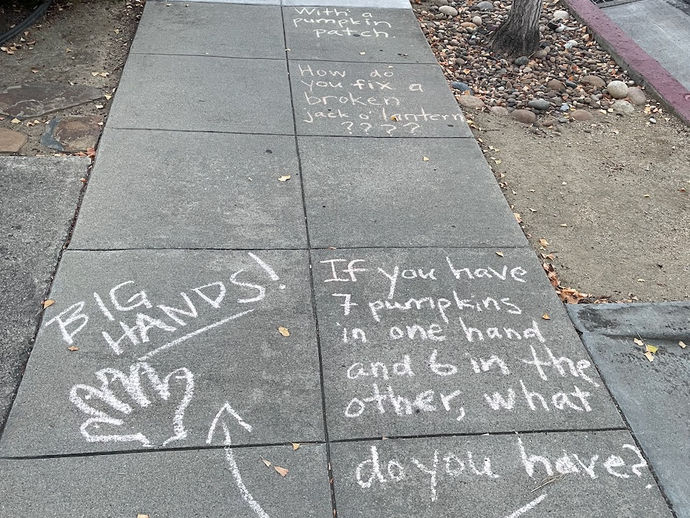 With a
pumpkin
patch.
How do
you fix a
broken
jack o' lantern
????
BIG
HANDS!
If you have
7 pumpkins
in one hand
and 6 in the
other, what
do you have?